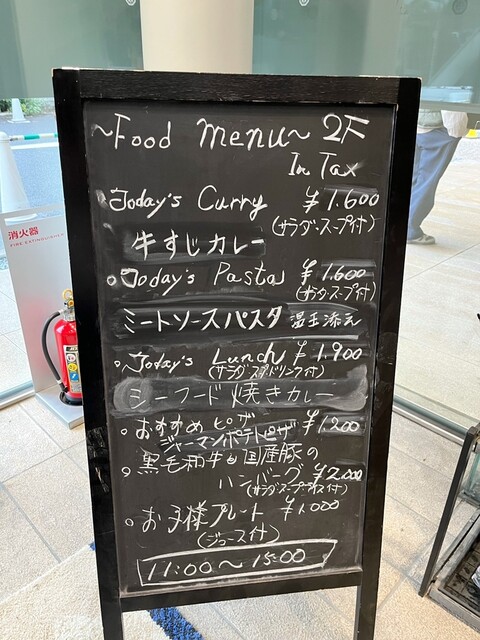 ~Food menu~ 2F
In Tax
Today's Curry ¥1.600
(サラダ・スープ付)
牛すじカレー
Today's Pasta ¥1.600
(サラダ・スープ付)
ミートソースパスタ 温玉添え
Today's Lunch ¥1.900
(サラダ・スープ・ドリンク付)
シーフード焼きカレー
おすすめピザ ¥1.200
ジャーマンポテトピザ
黒毛和牛&国産豚の
ハンバーグ ¥2.000
お子様プレート ¥1.000
(ジュース付)
11:00~15:00
消火器
FIRE EXTINGUISHER